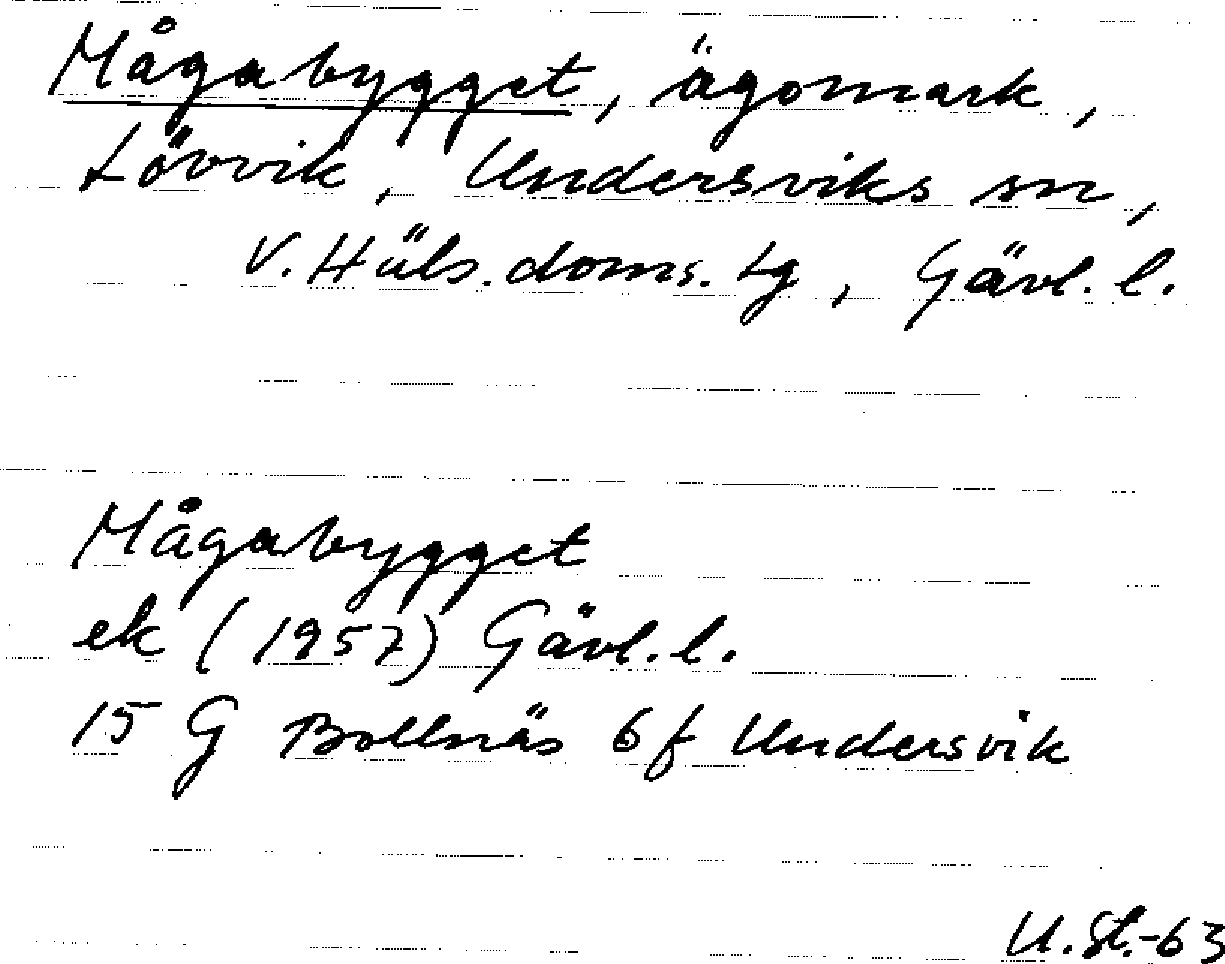 Mågabygget, ägomark,
Lövvik, Undersviks sn,
V. Häls. doms. tg, Gävl. l.
Mågabygget
ek (1957) Gävl. l.
15 G Bollnäs 6 f Undersvik
U. St.-63